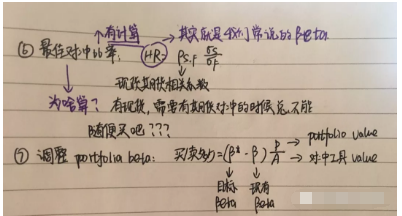 有计算 → 其实就是我们常说的 Beta
⑥ 最佳对冲比率: HR = ρs.f σs/σf
现货期货相关系数
为啥算? 有现货,需要有期货对冲的时候总不能
随便买吧???
⑦ 调整 portfolio beta: 买卖多少 = (β* - β) P/A → portfolio value
→ 对冲工具 value
目标 现有
beta beta